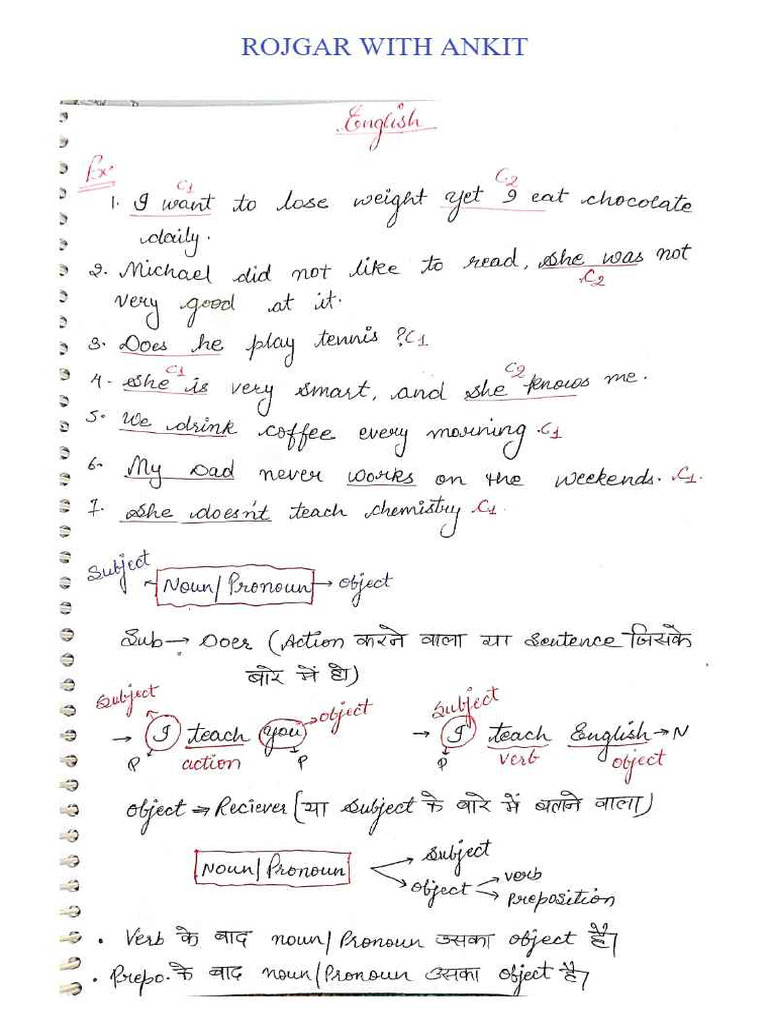 ROJGAR WITH ANKIT
English
Ex.
C1 C2
1. I want to lose weight yet I eat chocolate
daily.
2. Michael did not like to read, she was not
C2
very good at it.
3. Does he play tennis ? C1
C1 C2
4. She is very smart, and she knows me.
5. We drink coffee every morning. C1
6. My Dad never works on the weekends. C1.
7. She doesn't teach chemistry. C1.
Subject ← Noun/Pronoun → object
Sub → Doer (Action करने वाला या Sentence जिसके
बारे में हो)
Subject object Subject
→ I teach you → I teach English → N
P action P P verb object
object ⇒ Reciever (या Subject के बारे में बताने वाला)
Noun/Pronoun → Subject
→ object → verb
→ preposition
• Verb के बाद noun/Pronoun उसका object है।
• Prepo. के बाद noun/Pronoun उसका object है।